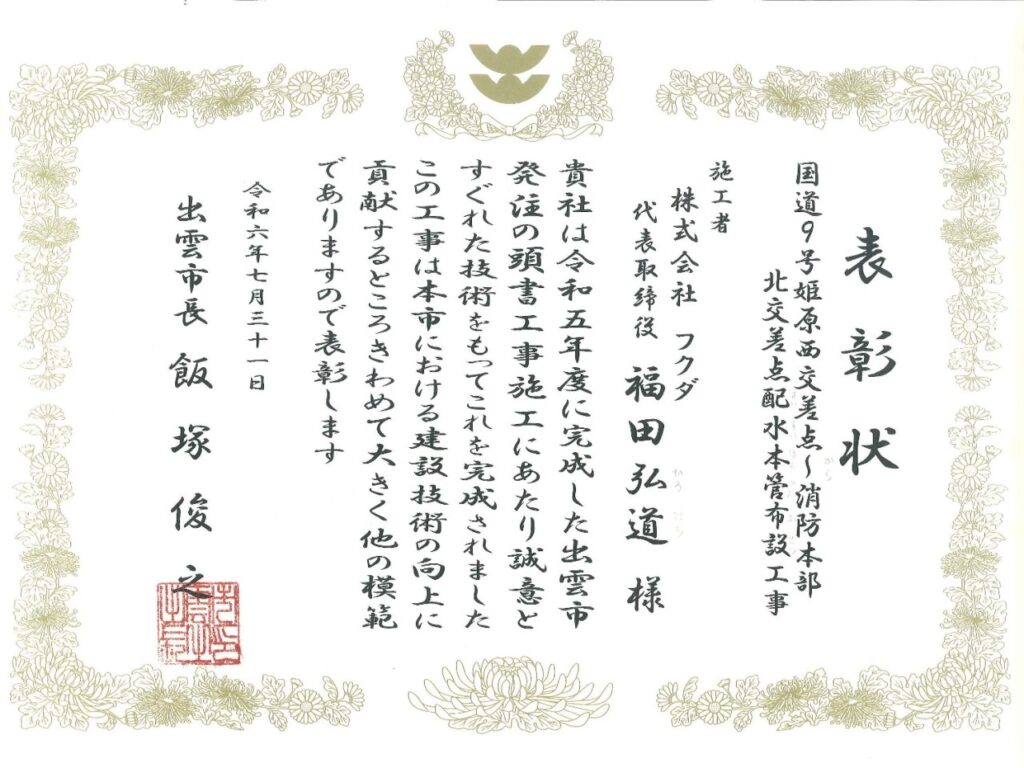 表彰状
国道9号姫原西交差点～消防本部
北交差点配水本管布設工事
施工者
株式会社 フクダ
代表取締役 福田弘道 様
貴社は令和五年度に完成した出雲市
発注の頭書工事施工にあたり誠意と
すぐれた技術をもってこれを完成されました
この工事は本市における建設技術の向上に
貢献するところきわめて大きく他の模範
でありますので表彰します
令和六年七月三十一日
出雲市長 飯塚俊之